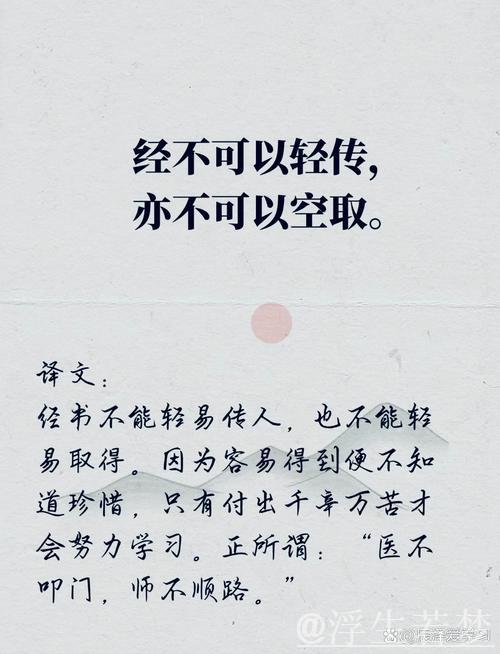 经不可以轻传，
亦不可以空取。
译文：
经书不能轻易传人，也不能轻
易取得。因为容易得到便不知
道珍惜，只有付出千辛万苦才
会努力学习。正所谓：“医不
叩门，师不顺路。”
@浮生若梦